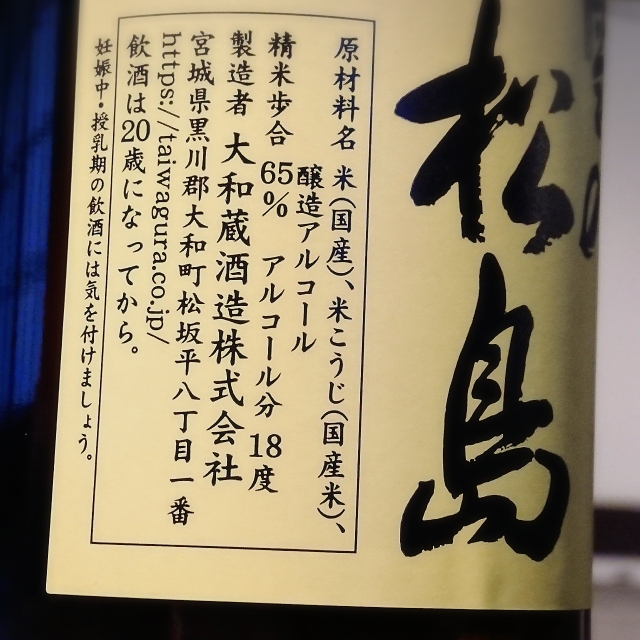 松島
原材料名 米(国産)、米こうじ(国産米)、
醸造アルコール
精米歩合 65% アルコール分 18度
製造者 大和蔵酒造株式会社
宮城県黒川郡大和町松坂平八丁目一番
https://taiwagura.co.jp/
飲酒は20歳になってから。
妊娠中・授乳期の飲酒には気を付けましょう。